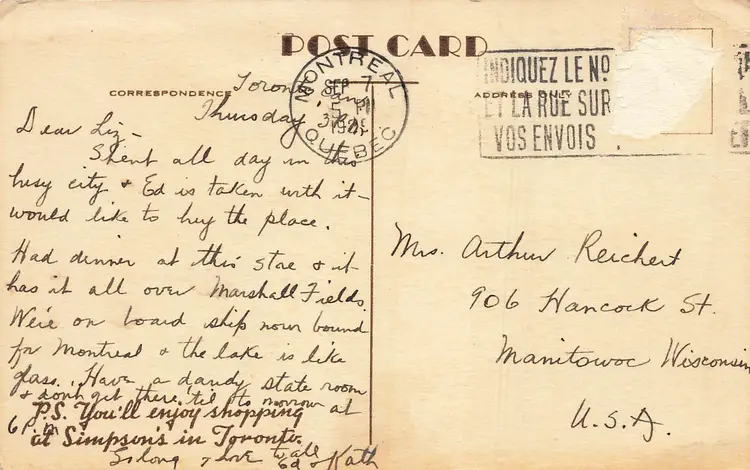 POST CARD
CORRESPONDENCE
ADDRESS ONLY
MONTREAL
SEP 7
QUEBEC
INDIQUEZ LE Nº
ET LA RUE SUR
VOS ENVOIS
Toronto
Thursday
Dear Liz -
Spent all day in this
busy city & Ed is taken with it -
would like to buy the place.
Had dinner at this store & it
has it all over Marshall Fields.
We're on board ship now bound
for Montreal & the lake is like
glass. Have a dandy state room
& don't get there 'til to morrow at
6 P.M.
P.S. You'll enjoy shopping
at Simpson's in Toronto.
So long & love to all
Ed & Kath
Mrs. Arthur Reichert
906 Hancock St.
Manitowoc Wisconsin
U.S.A.